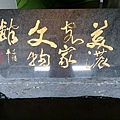 美濃
客家
文物
館